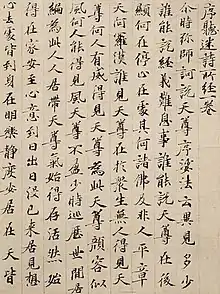 序聽迷詩所經一卷
尒時弥師訶說天尊序娑法云異見多少
誰能說經義難息事誰能說天尊在後
顯何在停止在處其何諸佛及非人平章
天阿羅漢誰見天尊在於衆生無人得見天
尊何人有威得見天尊為此天尊顏容似
風何人能得見風天尊不盈少時巡歷世間居
編為此人人居帶天尊氣始得存活然始
得在家安至心意到日出日没已來居見想
心去處皆到身在明樂靜度安居在天皆